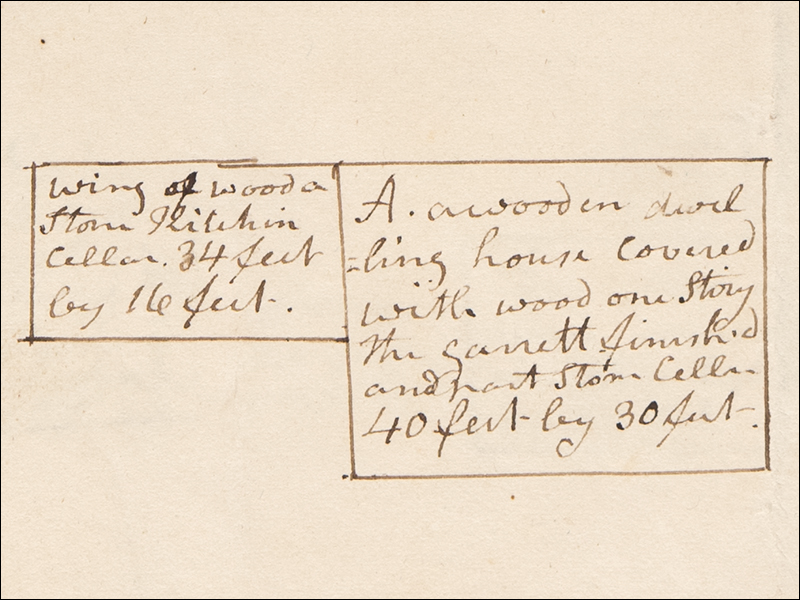 wing of wood a
Stone Kitchin
Cellar. 34 feet
by 16 feet.
A. a wooden dwel
=ling house Covered
with wood one Story
the garrett finish'd
and part Stone Cellar
40 feet by 30 feet.